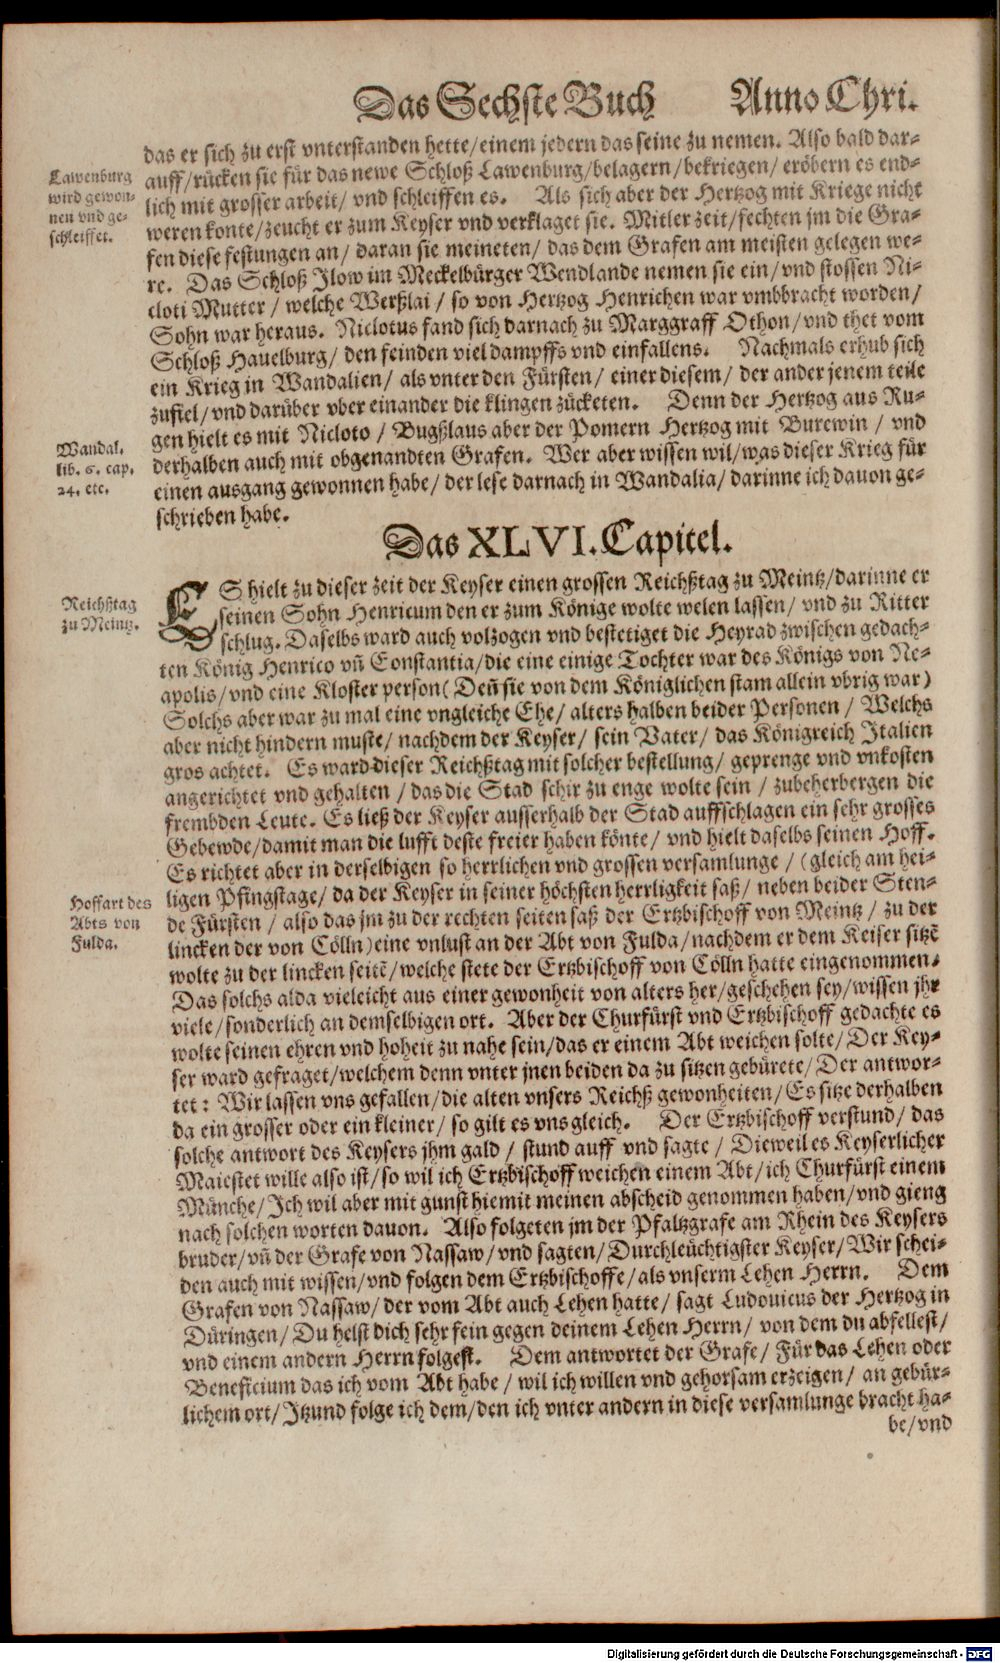 Das Sechste Buch Anno Chri.
das er sich zu erst vnterstanden hette/einem jedern das seine zu nemen. Also bald dar-
auff/rücken sie für das newe Schloß Lawenburg/belagern/bekriegen/eröbern es end-
lich mit grosser arbeit/ vnd schleiffen es. Als sich aber der Hertzog mit Kriege nicht
weren konte/zeucht er zum Keyser vnd verklaget sie. Mitler zeit/fechten jm die Gra-
fen diese festungen an/ daran sie meineten/ das dem Grafen am meisten gelegen we-
re. Das Schloß Ilow im Meckelbürger Wendlande nemen sie ein/vnd stossen Ni-
cloti Mutter / welche Werßlai / so von Hertzog Henrichen war vmbbracht worden/
Sohn war heraus. Niclotus fand sich darnach zu Marggraff Othon/vnd thet vom
Schloß Hauelburg/ den feinden viel dampffs vnd einfallens. Nachmals erhub sich
ein Krieg in Wandalien/ als vnter den Fürsten/ einer diesem/ der ander jenem teile
zufiel/vnd darüber vber einander die klingen zücketen. Denn der Hertzog aus Ru-
gen hielt es mit Nicloto / Bugßlaus aber der Pomern Hertzog mit Burewin / vnd
derhalben auch mit obgenandten Grafen. Wer aber wissen wil/was dieser Krieg für
einen ausgang gewonnen habe/ der lese darnach in Wandalia/ darinne ich dauon ge-
schrieben habe.
Lawenburg
wird gewon-
nen vnd ge-
schleiffet.
Wandal.
lib. 6. cap.
24. etc.
Das XLVI. Capitel.
ES hielt zu dieser zeit der Keyser einen grossen Reichßtag zu Meintz/darinne er
seinen Sohn Henricum den er zum Könige wolte welen lassen/ vnd zu Ritter
schlug. Daselbs ward auch volzogen vnd bestetiget die Heyrad zwischen gedach-
ten König Henrico vñ Constantia/die eine einige Tochter war des Königs von Ne-
apolis/vnd eine Kloster person( Deñ sie von dem Königlichen stam allein vbrig war)
Solchs aber war zu mal eine vngleiche Ehe/ alters halben beider Personen / Welchs
aber nicht hindern muste/ nachdem der Keyser/ sein Vater/ das Königreich Italien
gros achtet. Es ward dieser Reichßtag mit solcher bestellung/ geprenge vnd vnkosten
angerichtet vnd gehalten / das die Stad schir zu enge wolte sein / zubeherbergen die
frembden Leute. Es ließ der Keyser ausserhalb der Stad auffschlagen ein sehr grosses
Gebewde/damit man die lufft deste freier haben könte/ vnd hielt daselbs seinen Hoff.
Es richtet aber in derselbigen so herrlichen vnd grossen versamlunge / (gleich am hei-
ligen Pfingstage/ da der Keyser in seiner höchsten herrligkeit saß/ neben beider Sten-
de Fürsten / also das jm zu der rechten seiten saß der Ertzbischoff von Meintz / zu der
lincken der von Cölln) eine vnlust an der Abt von Fulda/nachdem er dem Keiser sitzē
wolte zu der lincken seitē/welche stete der Ertzbischoff von Cölln hatte eingenommen.
Das solchs alda vieleicht aus einer gewonheit von alters her/geschehen sey/wissen jhr
viele/sonderlich an demselbigen ort. Aber der Churfürst vnd Ertzbischoff gedachte es
wolte seinen ehren vnd hoheit zu nahe sein/das er einem Abt weichen solte/ Der Key-
ser ward gefraget/welchem denn vnter jnen beiden da zu sitzen gebürete/ Der antwor-
tet : Wir lassen vns gefallen/die alten vnsers Reichß gewonheiten/ Es sitze derhalben
da ein grosser oder ein kleiner/ so gilt es vns gleich. Der Ertzbischoff verstund/ das
solche antwort des Keysers jhm gald / stund auff vnd sagte / Dieweil es Keyserlicher
Maiestet wille also ist/so wil ich Ertzbischoff weichen einem Abt/ich Churfürst einem
Münche/ Ich wil aber mit gunst hiemit meinen abscheid genommen haben/vnd gieng
nach solchen worten dauon. Also folgeten jm der Pfaltzgrafe am Rhein des Keysers
bruder/vñ der Grafe von Nassaw/vnd sagten/ Durchleüchtigster Keyser/ Wir schei-
den auch mit wissen/vnd folgen dem Ertzbischoffe/als vnserm Lehen Herrn. Dem
Grafen von Nassaw/ der vom Abt auch Lehen hatte/ sagt Ludouicus der Hertzog in
Düringen/ Du helst dich sehr fein gegen deinem Lehen Herrn/ von dem du abfellest/
vnd einem andern Herrn folgest. Dem antwortet der Grafe/ Für das Lehen oder
Beneficium das ich vom Abt habe / wil ich willen vnd gehorsam erzeigen/ an gebür-
lichem ort/ Itzund folge ich dem/den ich vnter andern in diese versamlunge bracht ha-
be/vnd
Reichßtag
zu Meintz.
Hoffart des
Abts von
Fulda.
Digitalisierung gefördert durch die Deutsche Forschungsgemeinschaft - DFG